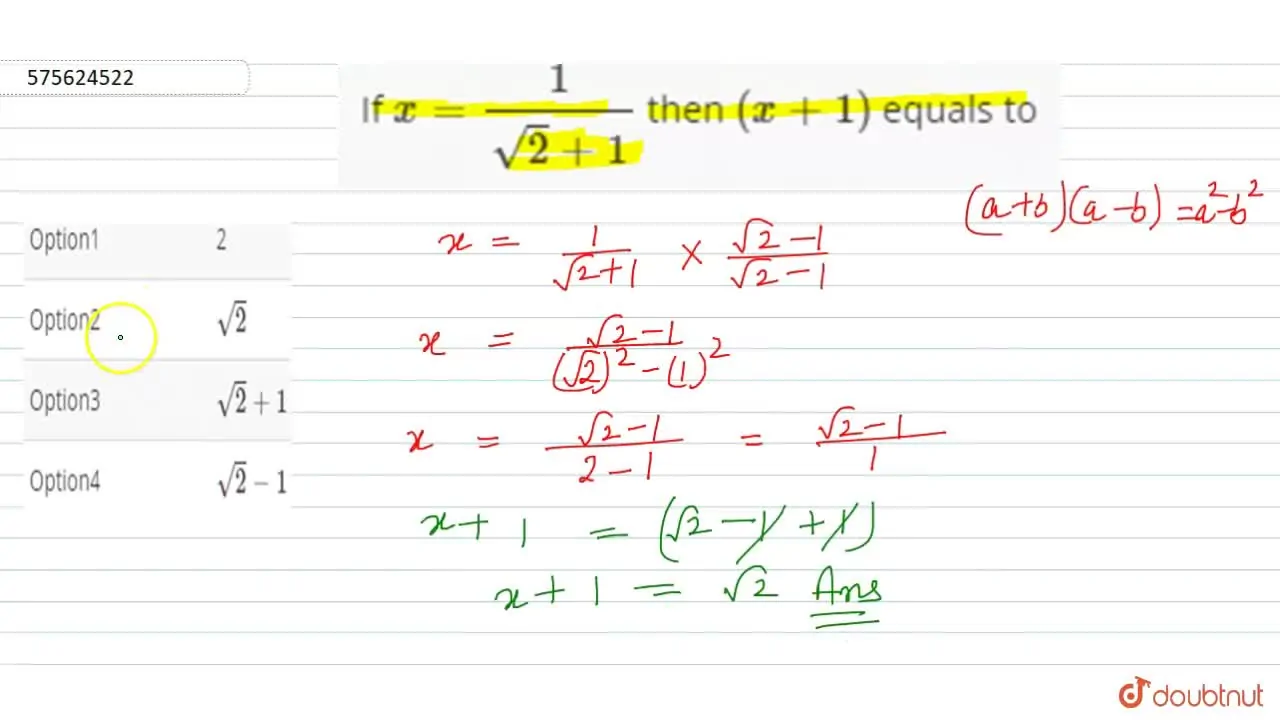 575624522
If x = 1/(√2 + 1) then (x + 1) equals to
(a+b)(a-b) = a²-b²
Option1 2
Option2 √2
Option3 √2 + 1
Option4 √2 − 1
x = 1/(√2+1) × (√2-1)/(√2-1)
x = (√2-1)/((√2)²-(1)²)
x = (√2-1)/(2-1) = (√2-1)/1
x+1 = (√2-1+1)
x+1 = √2 Ans
doubtnut